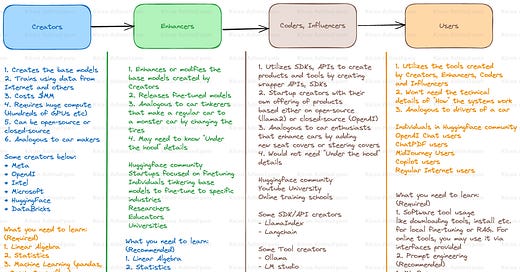 Creators
Enhancers
Coders, Influencers
Users
1. Creates the base models
2. Trains using data from
Internet and others
3. Costs $MM
4. Requires huge compute
(Hundreds of GPUs etc)
5. Can be open-source or
closed-source
6. Analogous to car makers
Some creators below:
• Meta
• OpenAI
• Intel
• Microsoft
• HuggingFace
• DataBricks
What you need to learn:
(Required)
1. Linear Algebra
2. Statistics
3. Machine Learning (pandas,
1. Enhances or modifies the
base models created by
Creators
2. Releases fine-tuned models
3. Analogous to car tinkerers
that make a regular car to
a monster car by changing the
tires
4. May need to know 'Under
the hood' details
HuggingFace community
Startups focused on finetuning
Individuals tinkering base
models to fine-tune to specific
industries
Researchers
Educators
Universities
What you need to learn:
(Recommended)
1. Linear Algebra
2. Statistics
1. Utilizes SDKs, APIs to create
products and tools by creating
wrapper APIs, SDKs
2. Startup creators with their
own offering of products
based either on open-source
(llama2) or closed-source (OpenAI)
3. Analogous to car enthusiasts
that enhance cars by adding
new seat covers or steering covers
4. Would not need 'Under the hood'
details
HuggingFace community
Youtube University
Online training schools
Some SDK/API creators
- LlamaIndex
- Langchain
Some Tool creators
- Ollama
- LM studio
1. Utilizes the tools created
by Creators, Enhancers, Coders
and Influencers
2. Won't need the technical
details of 'How' the systems work
3. Analogous to drivers of a car
Individuals in HuggingFace community
OpenAI Chat users
ChatPDF users
MidJourney Users
Copilot users
Regular Internet users
What you need to learn:
(Required)
1. Software tool usage
like downloading tools, install etc.
for local fine-tuning or RAGs. For
online tools, you may use it via
interfaces provided
2. Prompt engineering
(Recommended)